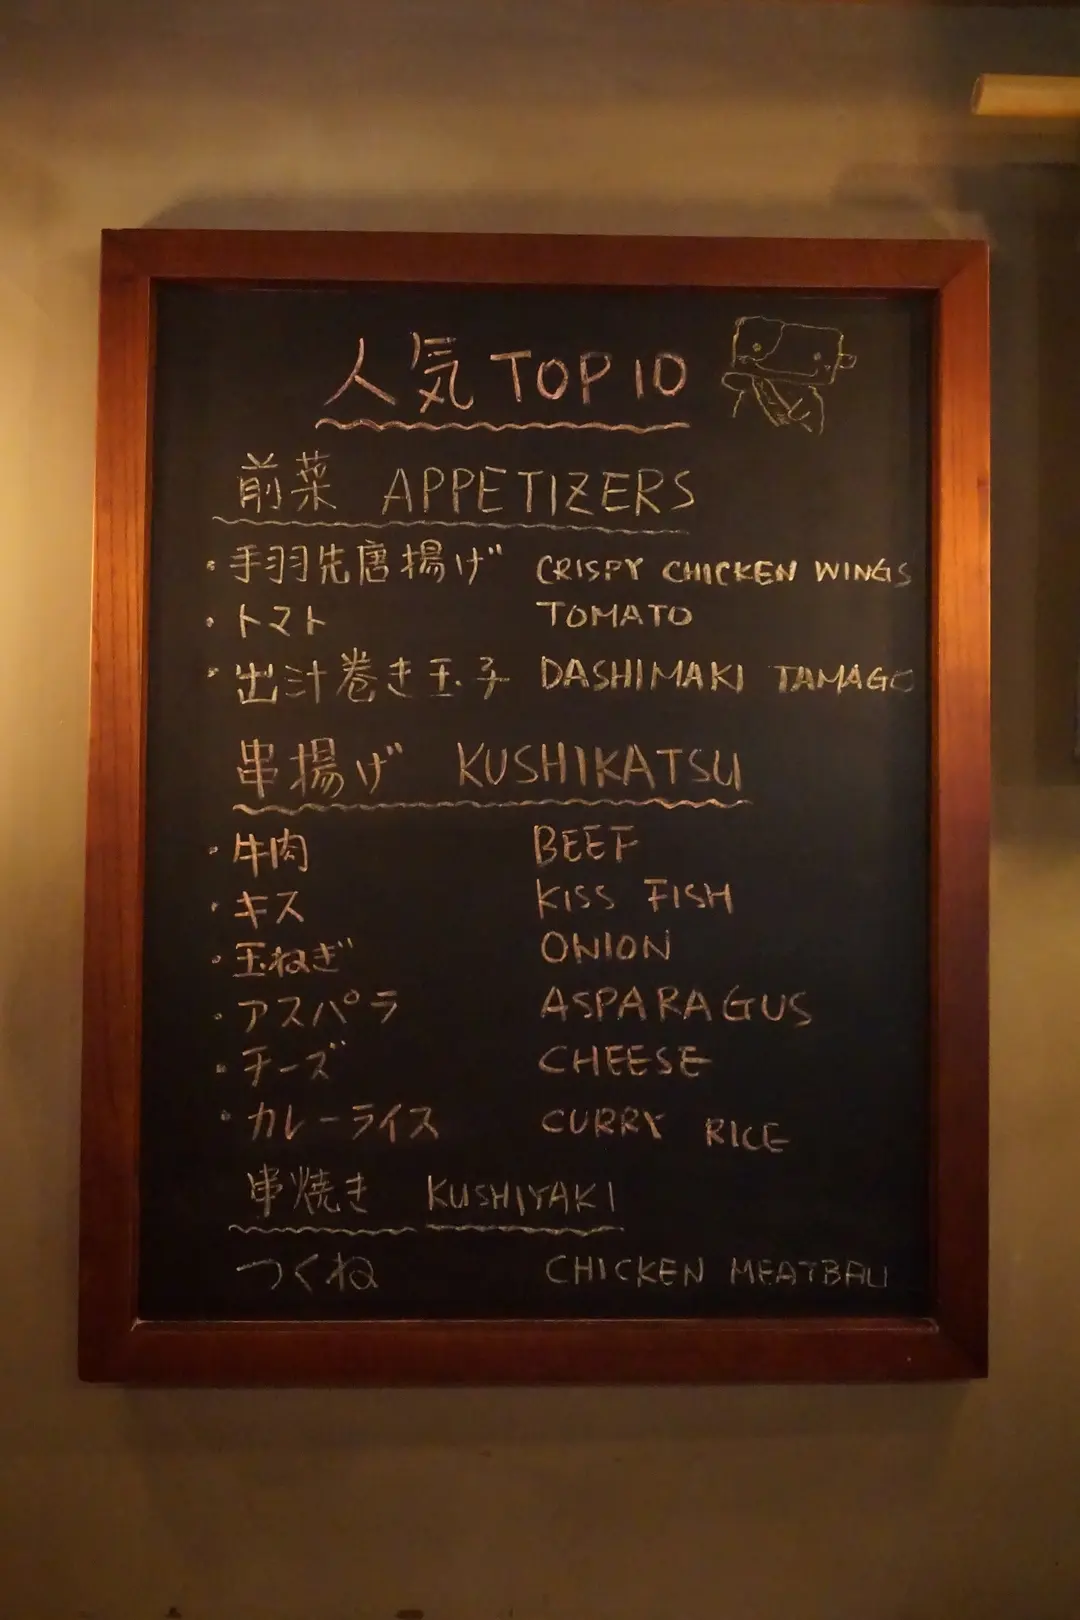 人気 TOP 10
前菜 APPETIZERS
・手羽先唐揚げ CRISPY CHICKEN WINGS
・トマト TOMATO
・出汁巻き玉子 DASHIMAKI TAMAGO
串揚げ KUSHIKATSU
・牛肉 BEEF
・キス KISS FISH
・玉ねぎ ONION
・アスパラ ASPARAGUS
・チーズ CHEESE
・カレーライス CURRY RICE
串焼き KUSHIYAKI
つくね CHICKEN MEATBALL